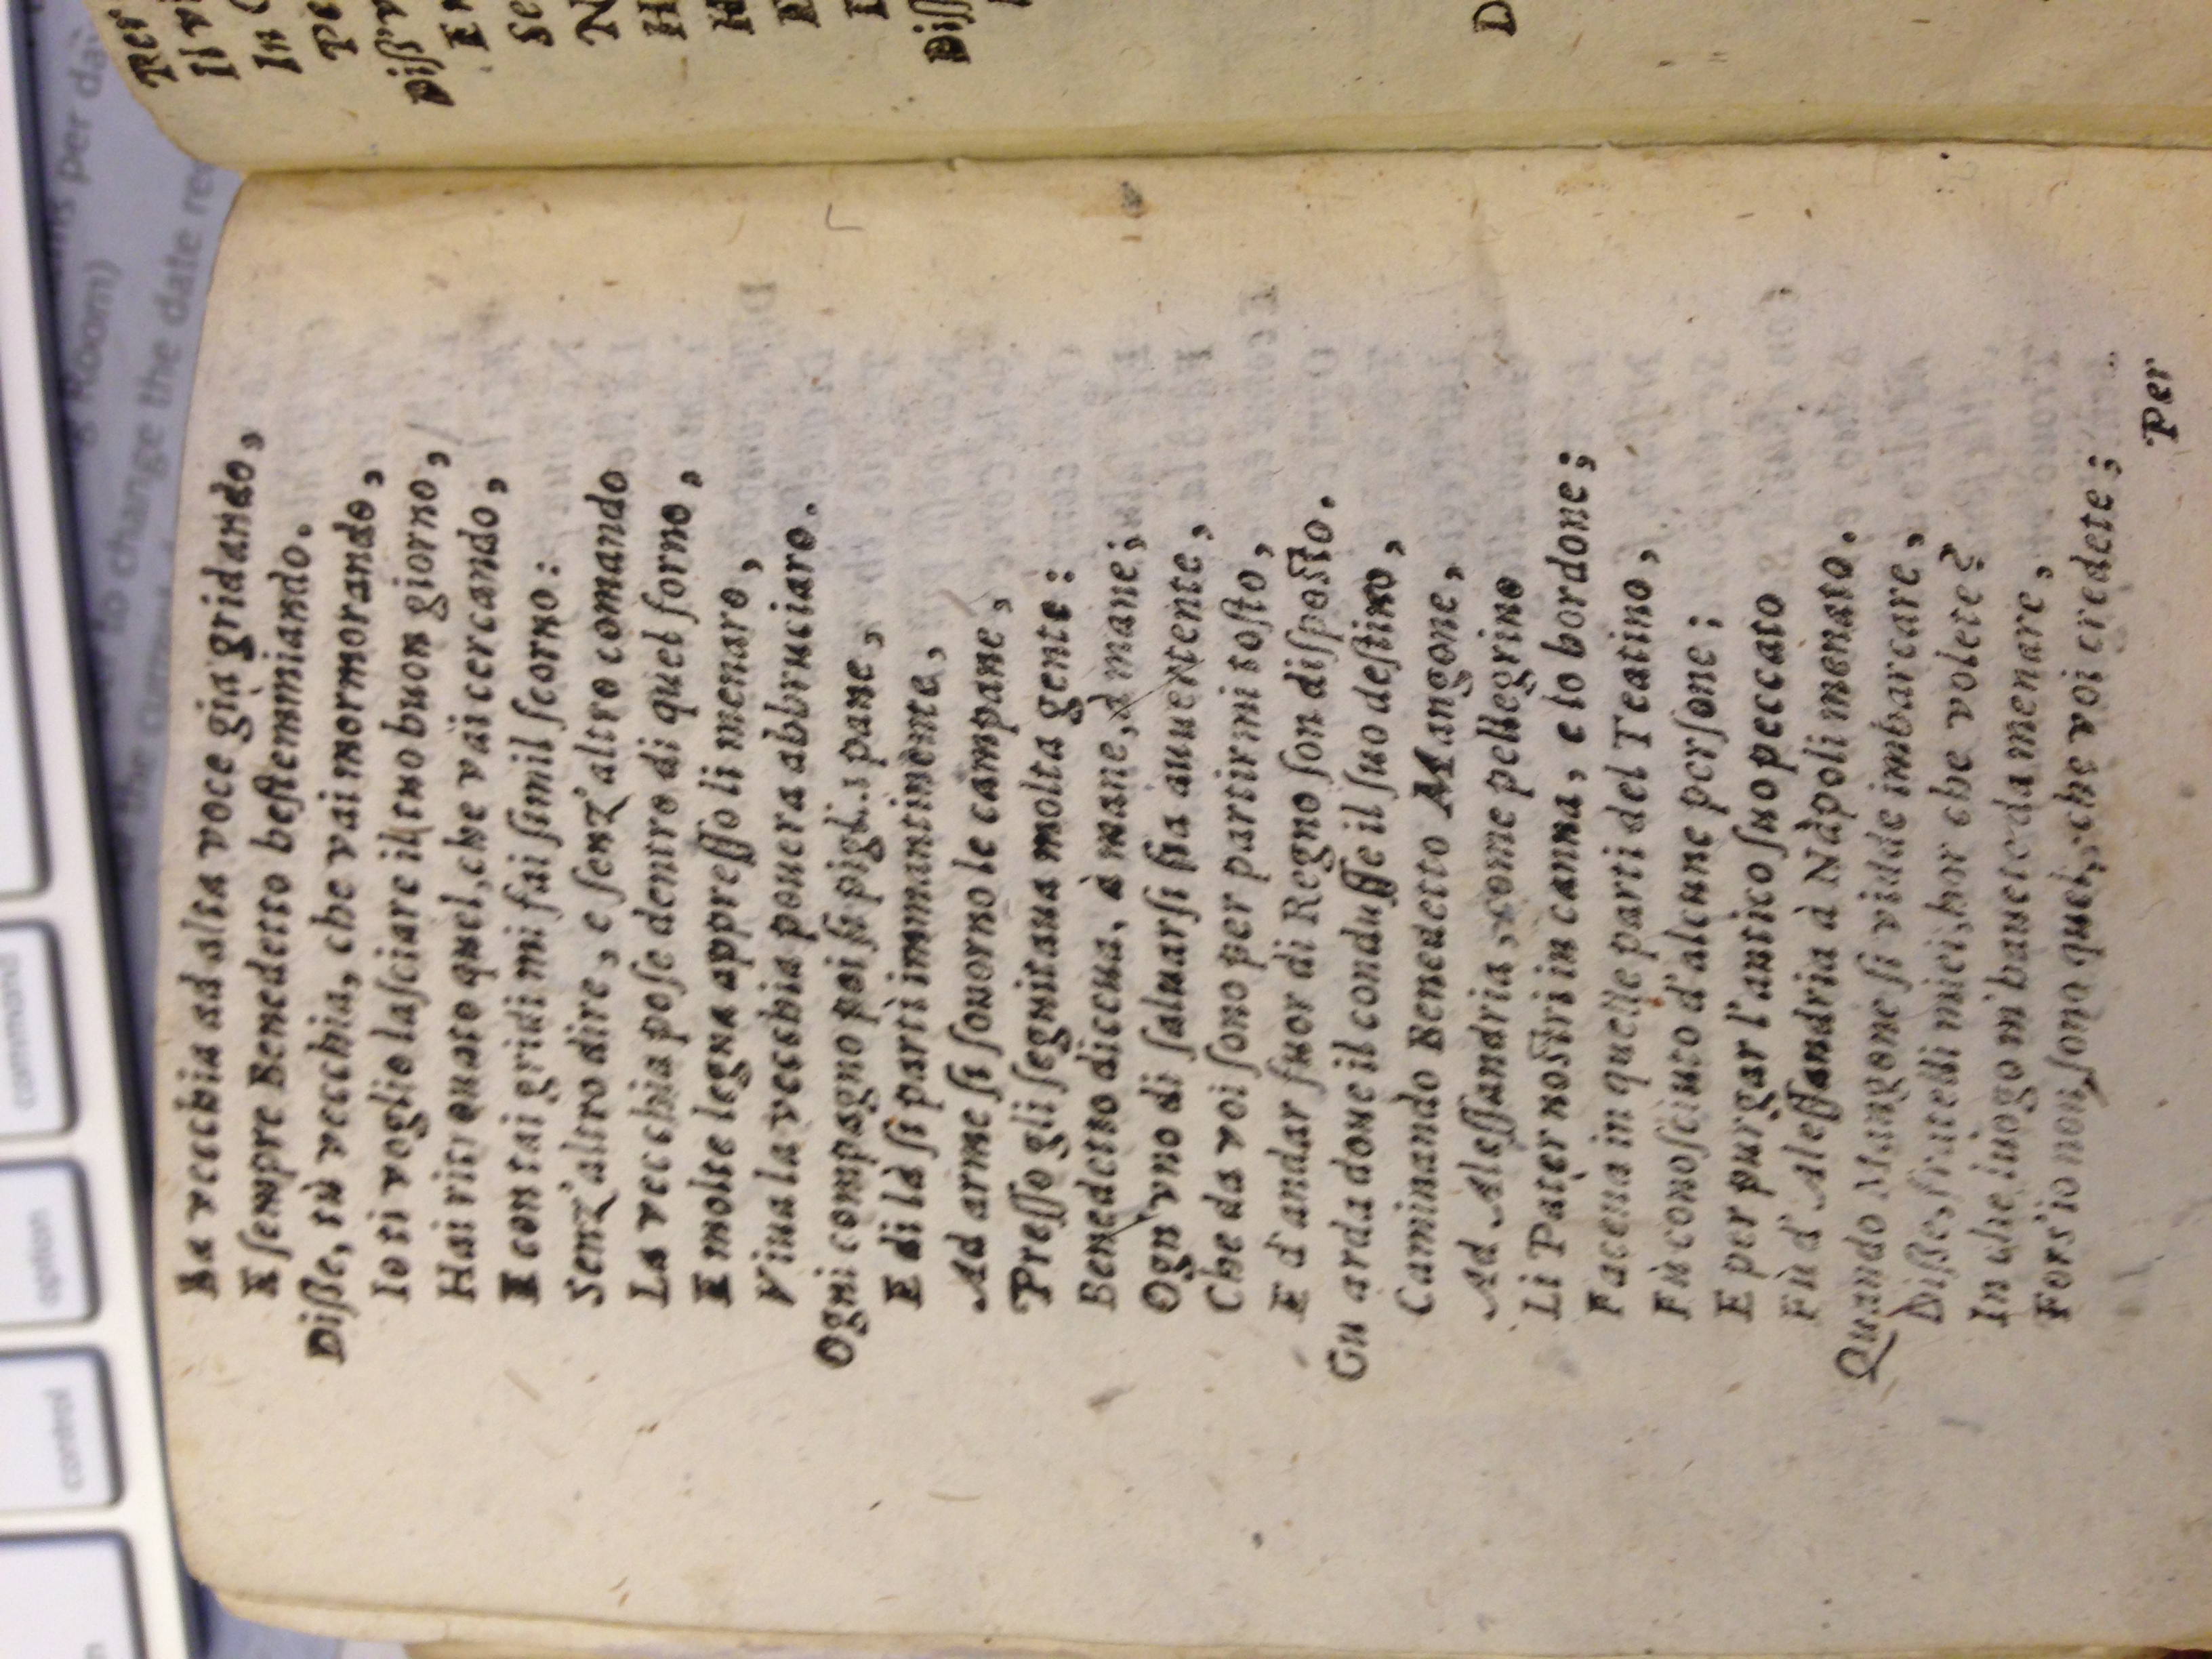 La vecchia ad alta voce già gridando,
E ſempre Benedetto beſtemmiando.
Diſſe, tù vecchia, che vai mormorando,
Io ti voglio laſciare il tuo buon giorno,
Hai ritrouato quel, che vai cercando,
E con tai gridi mi fai ſimil ſcorno:
Senz'altro dire, e ſenz'altro comando
La vecchia poſe dentro di quel forno,
E molte legna appreſſo li menaro,
Viua la vecchia pouera abbruciaro.
Ogni compagno poi ſi piglia pane,
E di là ſi partì immantinente,
Ad arme ſi ſonorno le campane,
Preſſo gli ſeguitaua molta gente:
Benedetto diceua, à mane, à mane;
Ogn'vno di ſaluarſi ſia auuertente,
Che da voi ſono per partirmi toſto,
E d'andar fuor di Regno ſon diſpoſto.
Gu arda doue il conduſſe il ſuo deſtino,
Caminando Benedetto Mangone,
Ad Aleſſandria, come pellegrino
Li Pater noſtri in canna, e lo bordone;
Facena in quelle parti del Teatino,
Fù conoſciuto d'alcune perſone;
E per purgar l'antico ſuo peccato
Fù d'Aleſſandria à Nàpoli menato.
Quando Mangone ſi vidde imbarcare,
Diſſe, fratelli miei, hor che volete?
In che luogo m'hauete da menare,
Fors'io non ſono quel, che voi credete;
Per
Per
Il vi
In
Pe
Diſſ'v
E
Se
N
H
H
Diſſ
D
per da
Room)
to change the date
command
option
control